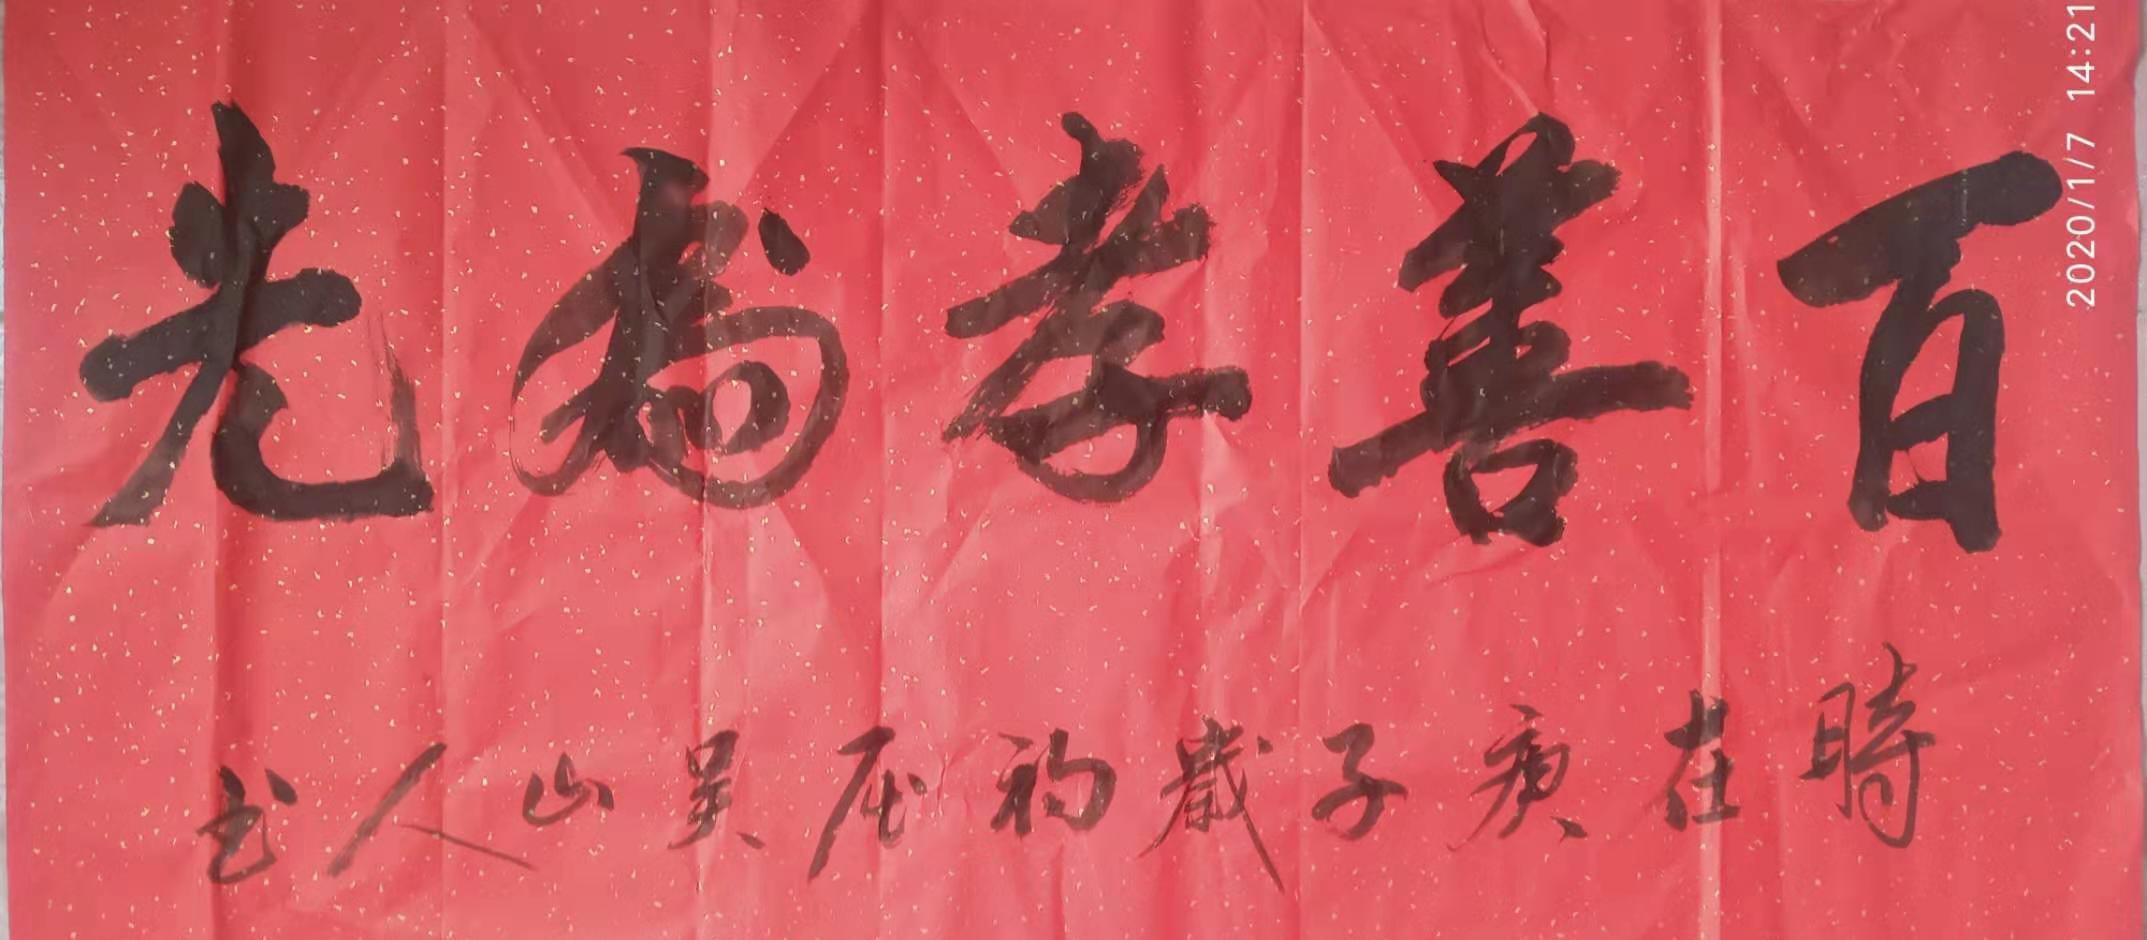 百善孝為先
時在庚子歲初屈吴山人书
2020/1/7 14:21